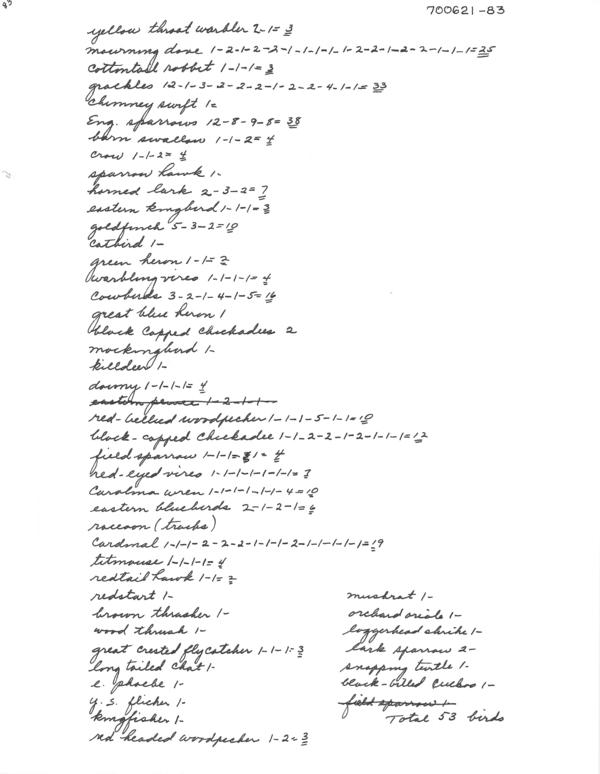 700621-83
yellow throat warbler 2-1= 3
mourning dove 1-2-1-2-2-1-1-1-1-1-2-2-1-2-2-1-1-1=25
cottontail rabbit 1-1-1= 3
grackles 12-1-3-2-2-2-1-2-2-4-1-1= 33
chimney swift 1=
Eng. sparrows 12-8-9-8= 38
barn swallow 1-1-2= 4
crow 1-1-2= 4
sparrow hawk 1-
horned lark 2-3-2= 7
eastern kingbird 1-1-1= 3
goldfinch 5-3-2=10
catbird 1-
green heron 1-1= 2
warbling vireo 1-1-1-1= 4
Cowbirds 3-2-1-4-1-5= 16
great blue heron 1
black capped chickadees 2
mockingbird 1-
killdeer 1-
downy 1-1-1-1= 4
eastern pewee 1-2-1-1-
red-bellied woodpecker 1-1-1-5-1-1=10
black-capped chickadee 1-1-2-2-1-2-1-1-1=12
field sparrow 1-1-1= 1= 4
red-eyed vireo 1-1-1-1-1-1-1= 7
Carolina wren 1-1-1-1-1-1-4=10
eastern bluebirds 2-1-2-1=6
raccoon (tracks)
Cardinal 1-1-1-2-2-2-1-1-1-2-1-1-1-1-1=19
titmouse 1-1-1-1= 4
redtail hawk 1-1= 2
redstart 1-
brown thrasher 1-
wood thrush 1-
great crested flycatcher 1-1-1= 3
long tailed chat 1-
e. phoebe 1-
y. s. flicker 1-
kingfisher 1-
red headed woodpecker 1-2= 3
muskrat 1-
orchard oriole 1-
loggerhead shrike 1-
lark sparrow 2-
snapping turtle 1-
black-billed cuckoo 1-
field sparrow 1-
Total 53 birds